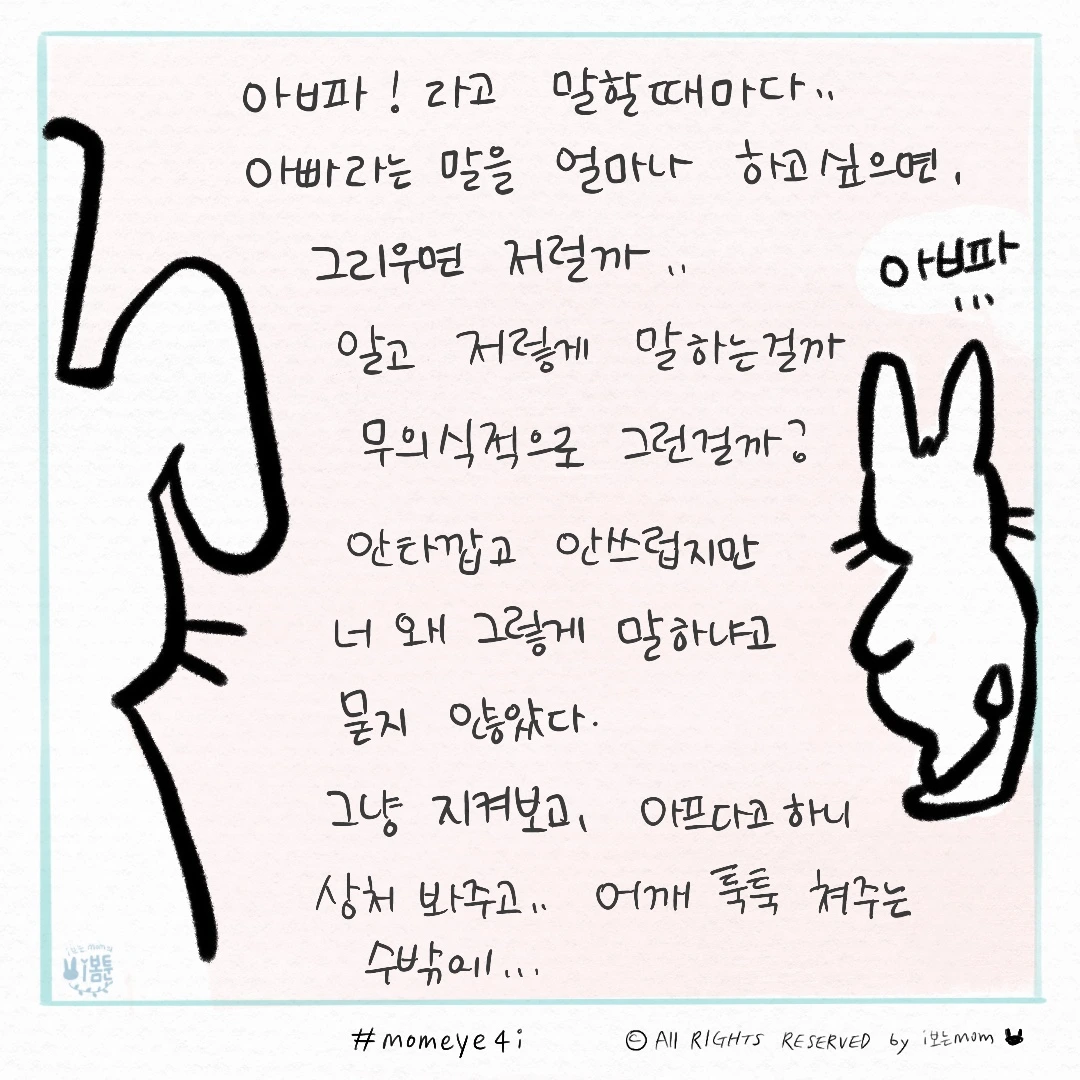 아ㅂ파! 라고 말할때마다..
아빠라는 말을 얼마나 하고싶으면,
그리우면 저럴까..
아ㅂ파
...
알고 저렇게 말하는걸까
무의식적으로 그런걸까?
안타깝고 안쓰럽지만
너 왜 그렇게 말하냐고
묻지 않았다.
그냥 지켜보고, 아프다고하니
상처 봐주고.. 어깨 툭툭 쳐주는
수밖에...
i보는mom의
i봄툰
#momeye4i
© All RIGHTS RESERVED by i보는mom